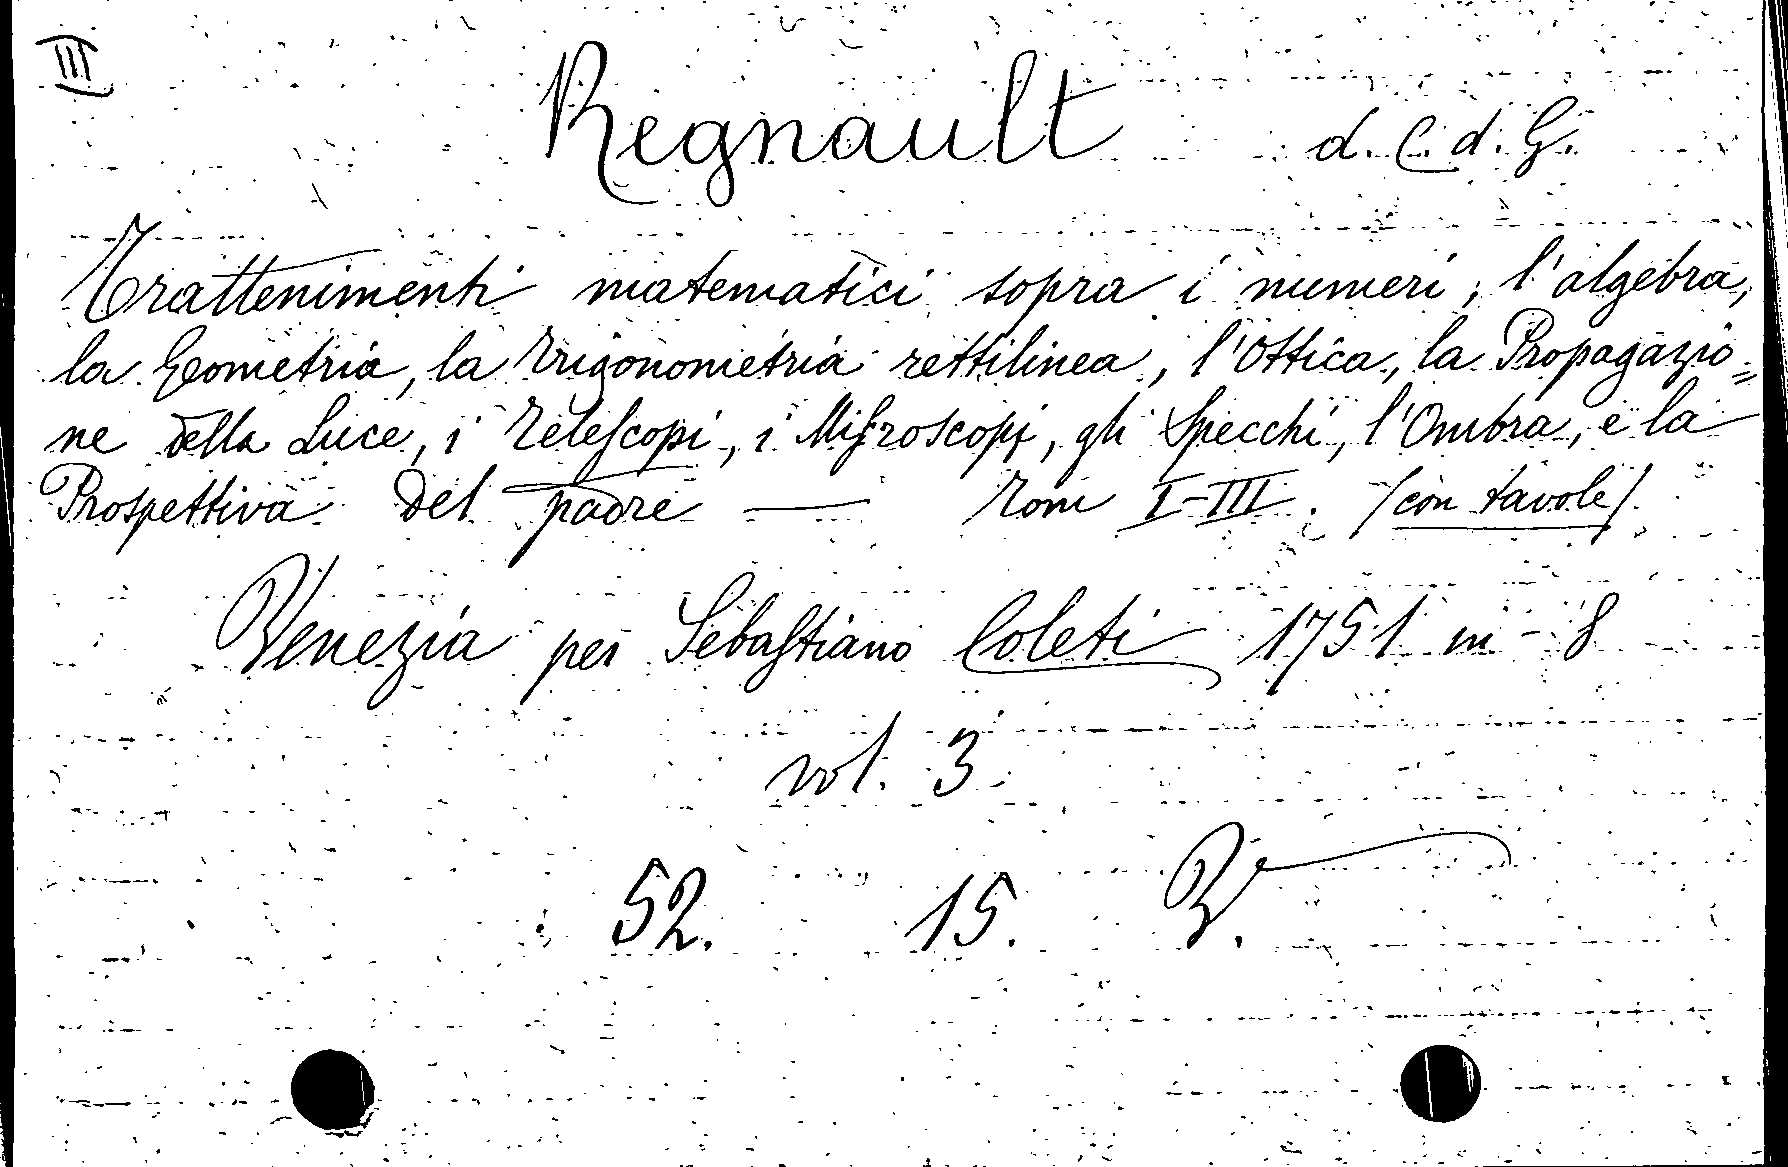 III
Regnault d. C. d. G.
Trattenimenti matematici sopra i numeri, l'algebra,
la Geometria, la Trigonometria rettilinea, l'Ottica, la Propagazio=
ne della Luce, i Telescopi, i Miscroscopj, gli Specchi, l'Ombra, e la
Prospettiva del padre — Tomi I-III. /con tavole/.
Venezia per Sebastiano Coleti 1751 in-8
vol. 3
52. 15. B.